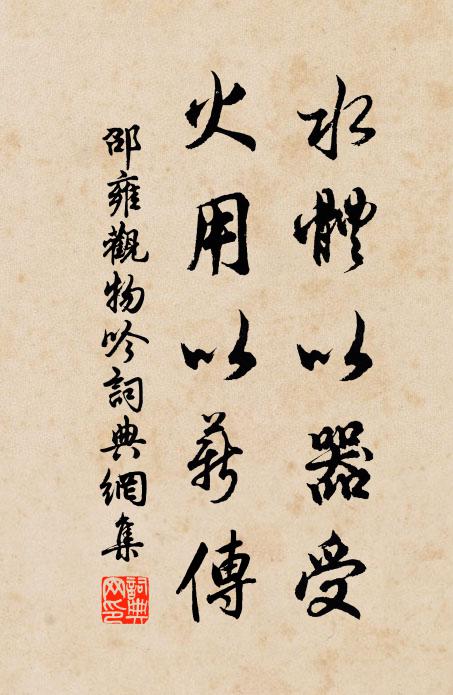 水體以器受
火用以薪傳
邵雍觀物吟詞典網集
詞典